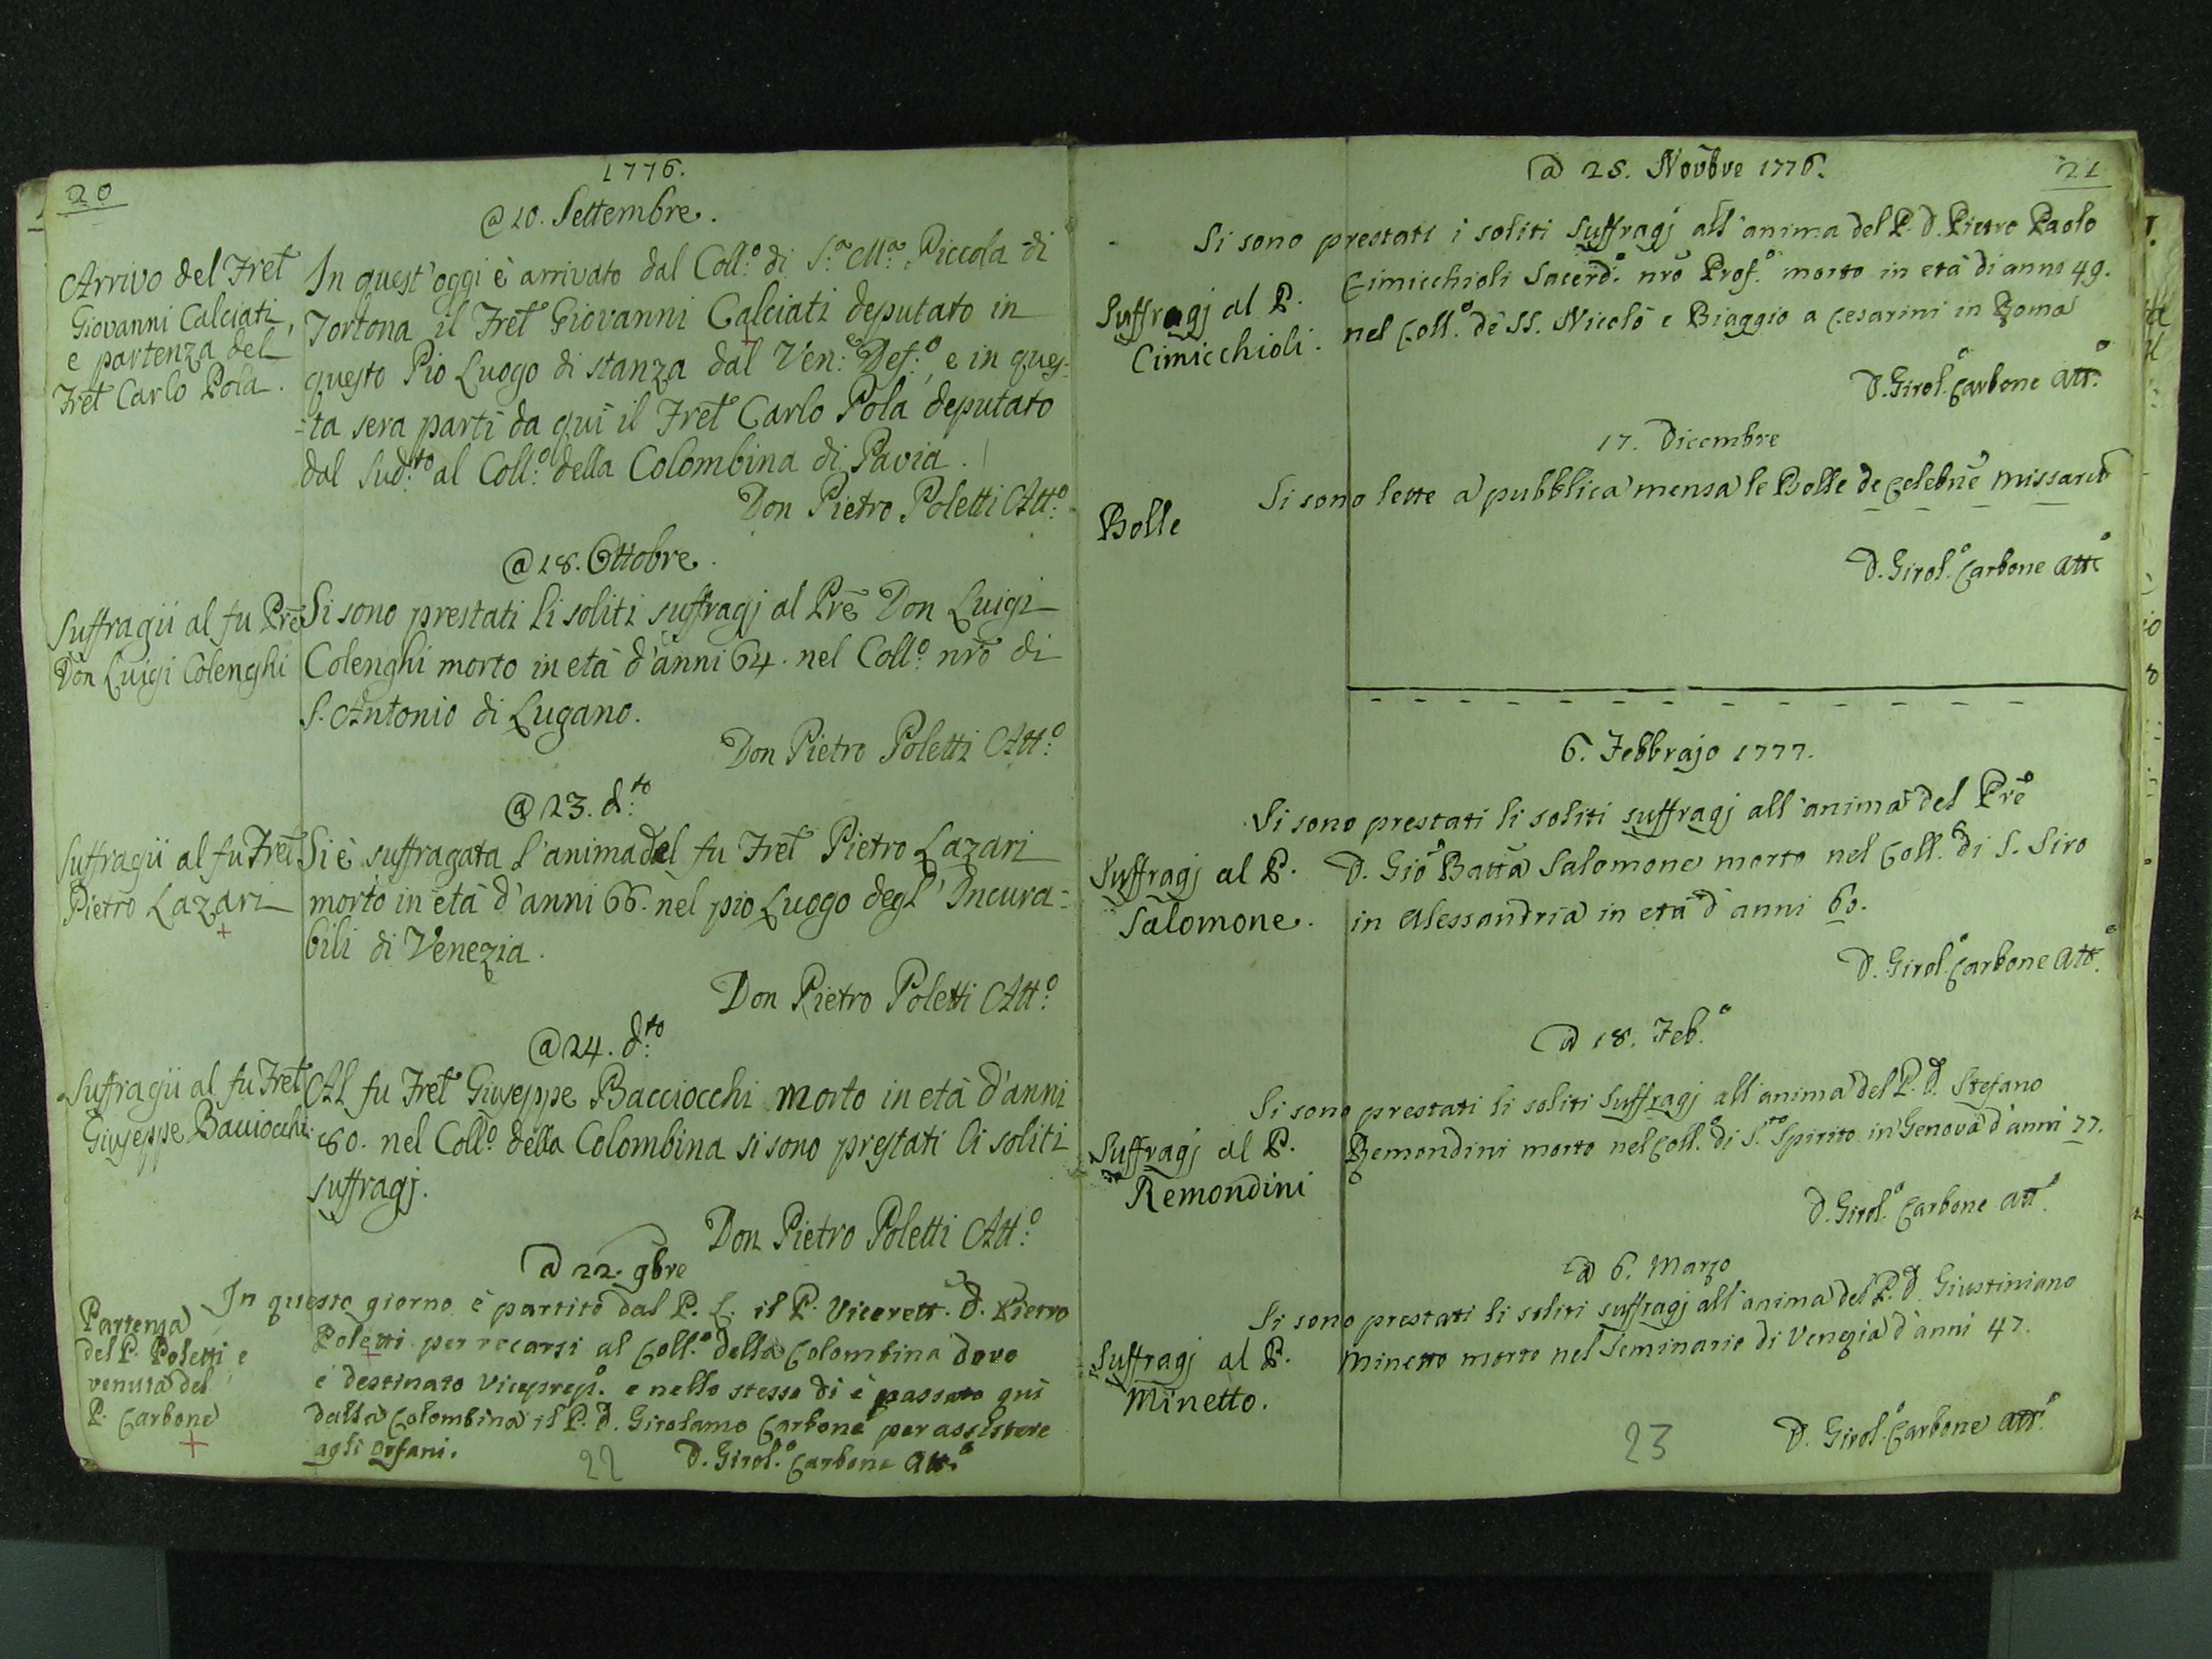 20
1776.
@ 10. Settembre.
Arrivo del Fret
Giovanni Calciati,
e partenza del
Fret Carlo Pola.
In quest'oggi è arrivato dal Coll:º di S.ª M.ª Piccola di
Tortona il Fret Giovanni Calciati deputato in
questo Pio Luogo di stanza dal Ven:e Def:º, e in ques-
-ta sera partì da quì il Fret Carlo Pola deputato
dal Sud:to al Coll:º della Colombina di Pavia.
Don Pietro Poletti Att:º
@ 18. Ottobre.
Suffragii al fu Prē
Don Luigi Colenghi
Si sono prestati li soliti suffragj al Prē Don Luigi
Colenghi morto in età d'anni 64. nel Coll:º nrō di
S. Antonio di Lugano.
Don Pietro Poletti Att:º
@ 23. d:to
Suffragii al fu Fret
Pietro Lazari
Si è suffragata l'anima del fu Fret Pietro Lazari
morto in età d'anni 66. nel pio Luogo degl'Incura-
bili di Venezia.
Don Pietro Poletti Att:º
@ 24. d:to
Suffragii al fu Fret
Giuseppe Bacciocchi.
Al fu Fret Giuseppe Bacciocchi morto in età d'anni
80. nel Coll:º della Colombina si sono prestati li soliti
suffragj.
Don Pietro Poletti Att:º
@ 22. 9bre
Partenza
del P. Poletti e
venuta del
P. Carbone
In questo giorno è partito dal P. L. il P. Vicerett. D. Pietro
Poletti per recarsi al Coll.º della Colombina dove
è destinato Viceprep.º e nello stesso dì è passato quì
dalla Colombina il P. D. Girolamo Carbone per assistere
agli orfani.
D. Girol.º Carbone Att.º
22
21
@ 28. Novbre 1776.
Suffragj al P.
Cimicchioli.
Si sono prestati i soliti suffragj all'anima del P. D. Pietro Paolo
Cimicchioli Sacerd.º nrō Prof.º morto in età di anni 49.
nel Coll.º dè SS. Nicolò e Biaggio a Cesarini in Roma
D. Girol.º Carbone Att.º
17. Dicembre
Bolle
Si sono lette a pubblica mensa le Bolle de Celebnē Missarū
D. Girol.º Carbone Att.º
6. Febbrajo 1777.
Suffragj al P.
Salomone.
Si sono prestati li soliti suffragj all'anima del Prē
D. Gio Batta Salomone morto nel Coll.º di S. Siro
in Alessandria in età d'anni 60.
D. Girol.º Carbone Att.º
@ 18. Feb.º
Suffragj al P.
Remondini
Si sono prestati li soliti suffragj all'anima del P. D. Stefano
Remondini morto nel Coll.º di S.to Spirito in Genova d'anni 77.
D. Girol.º Carbone Att.º
@ 6. Marzo
Suffragj al P.
Minetto.
Si sono prestati li soliti suffragj all'anima del P. D. Giustiniano
Minetto morto nel Seminario di Venezia d'anni 47.
D. Girol.º Carbone Att.º
23